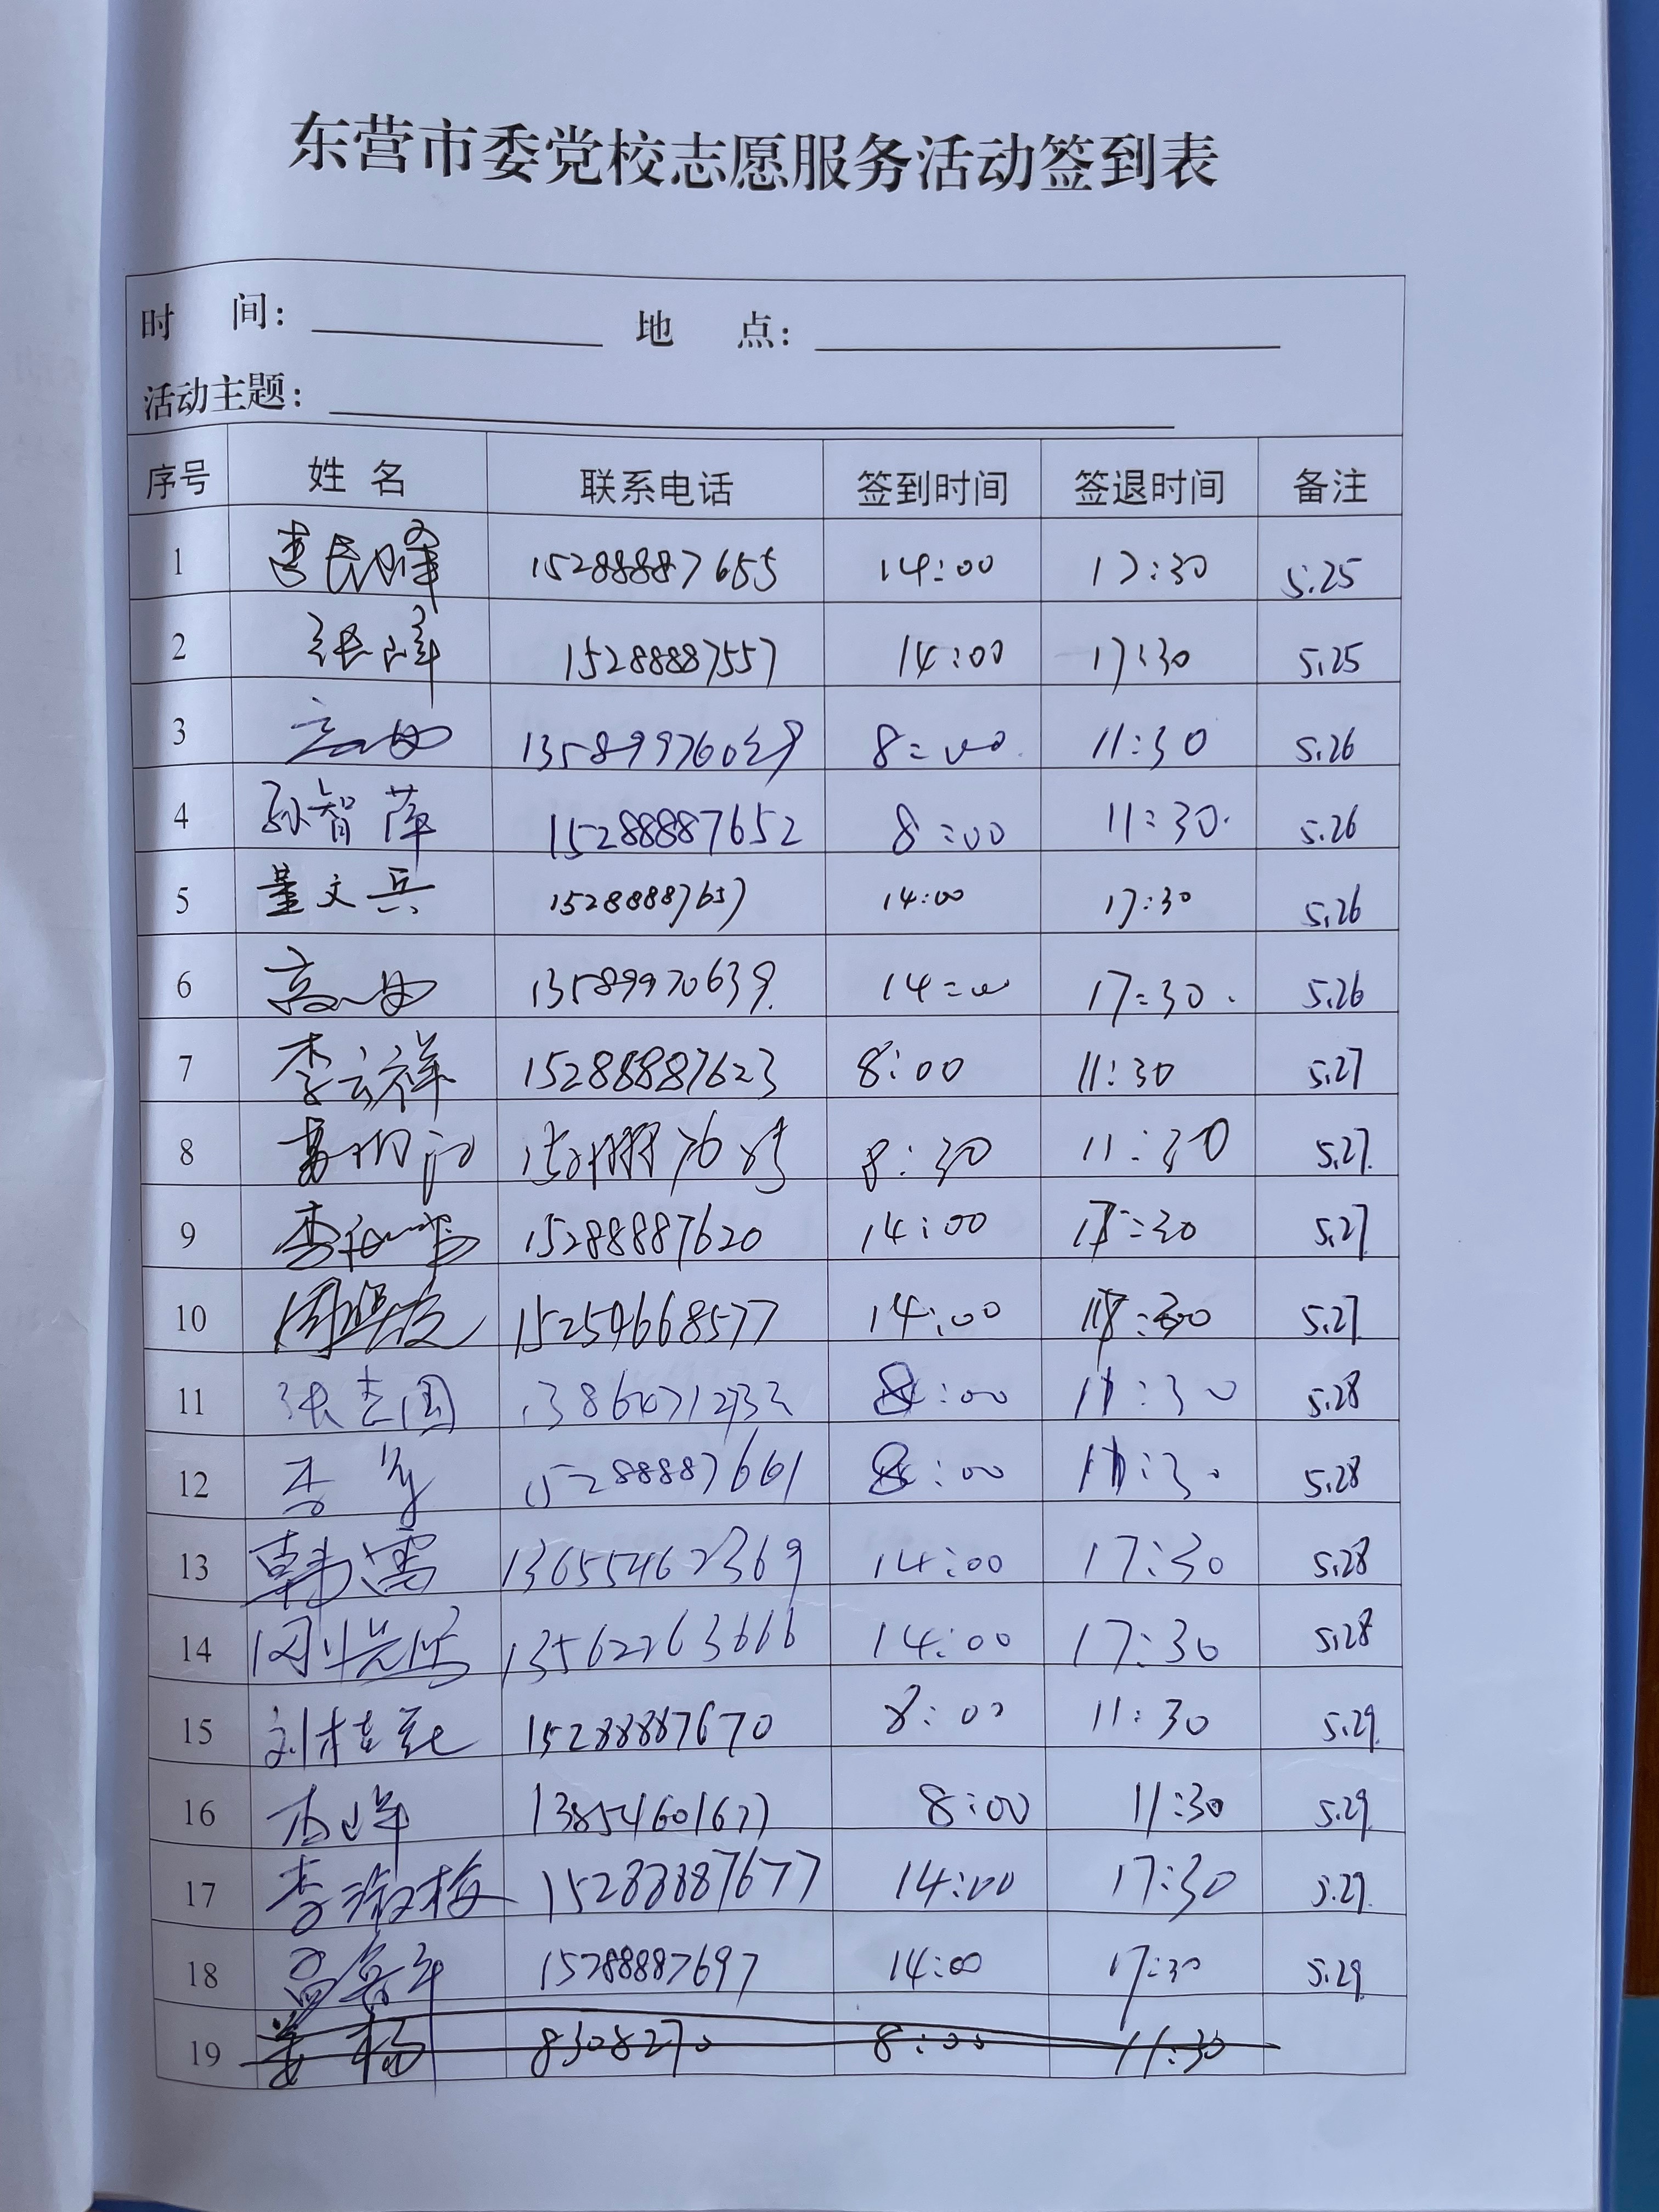 东营市委党校志愿服务活动签到表
时 间: 地 点:
活动主题:
序号 姓名 联系电话 签到时间 签退时间 备注
1 15288887655 14:00 17:30 5.25
2 张峰 15288887557 14:00 17:30 5.25
3 8:00 11:30 5.26
4 孙智萍 15288887652 8:00 11:30. 5.26
5 董文兵 15288887657 14:00 17:30 5.26
6 13589970639 14:00 17:30. 5.26
7 李云祥 15288887623 8:00 11:30 5.27
8 8:30 11:30 5.27
9 15288887620 14:00 17:30 5.27
10 15254668577 14:00 5.27
11 张志国 8:00 11:30 5.28
12 15288887661 8:00 11:30 5.28
13 韩雪 13655462369 14:00 17:30 5.28
14 13562263666 14:00 17:30 5.28
15 15288887670 8:00 11:30 5.29
16 13854601677 8:00 11:30 5.29
17 李淑梅 15288887677 14:00 17:30 5.29
18 15288887697 14:00 17:30 5.29
19 姜杨 8308270 8:00 11:30